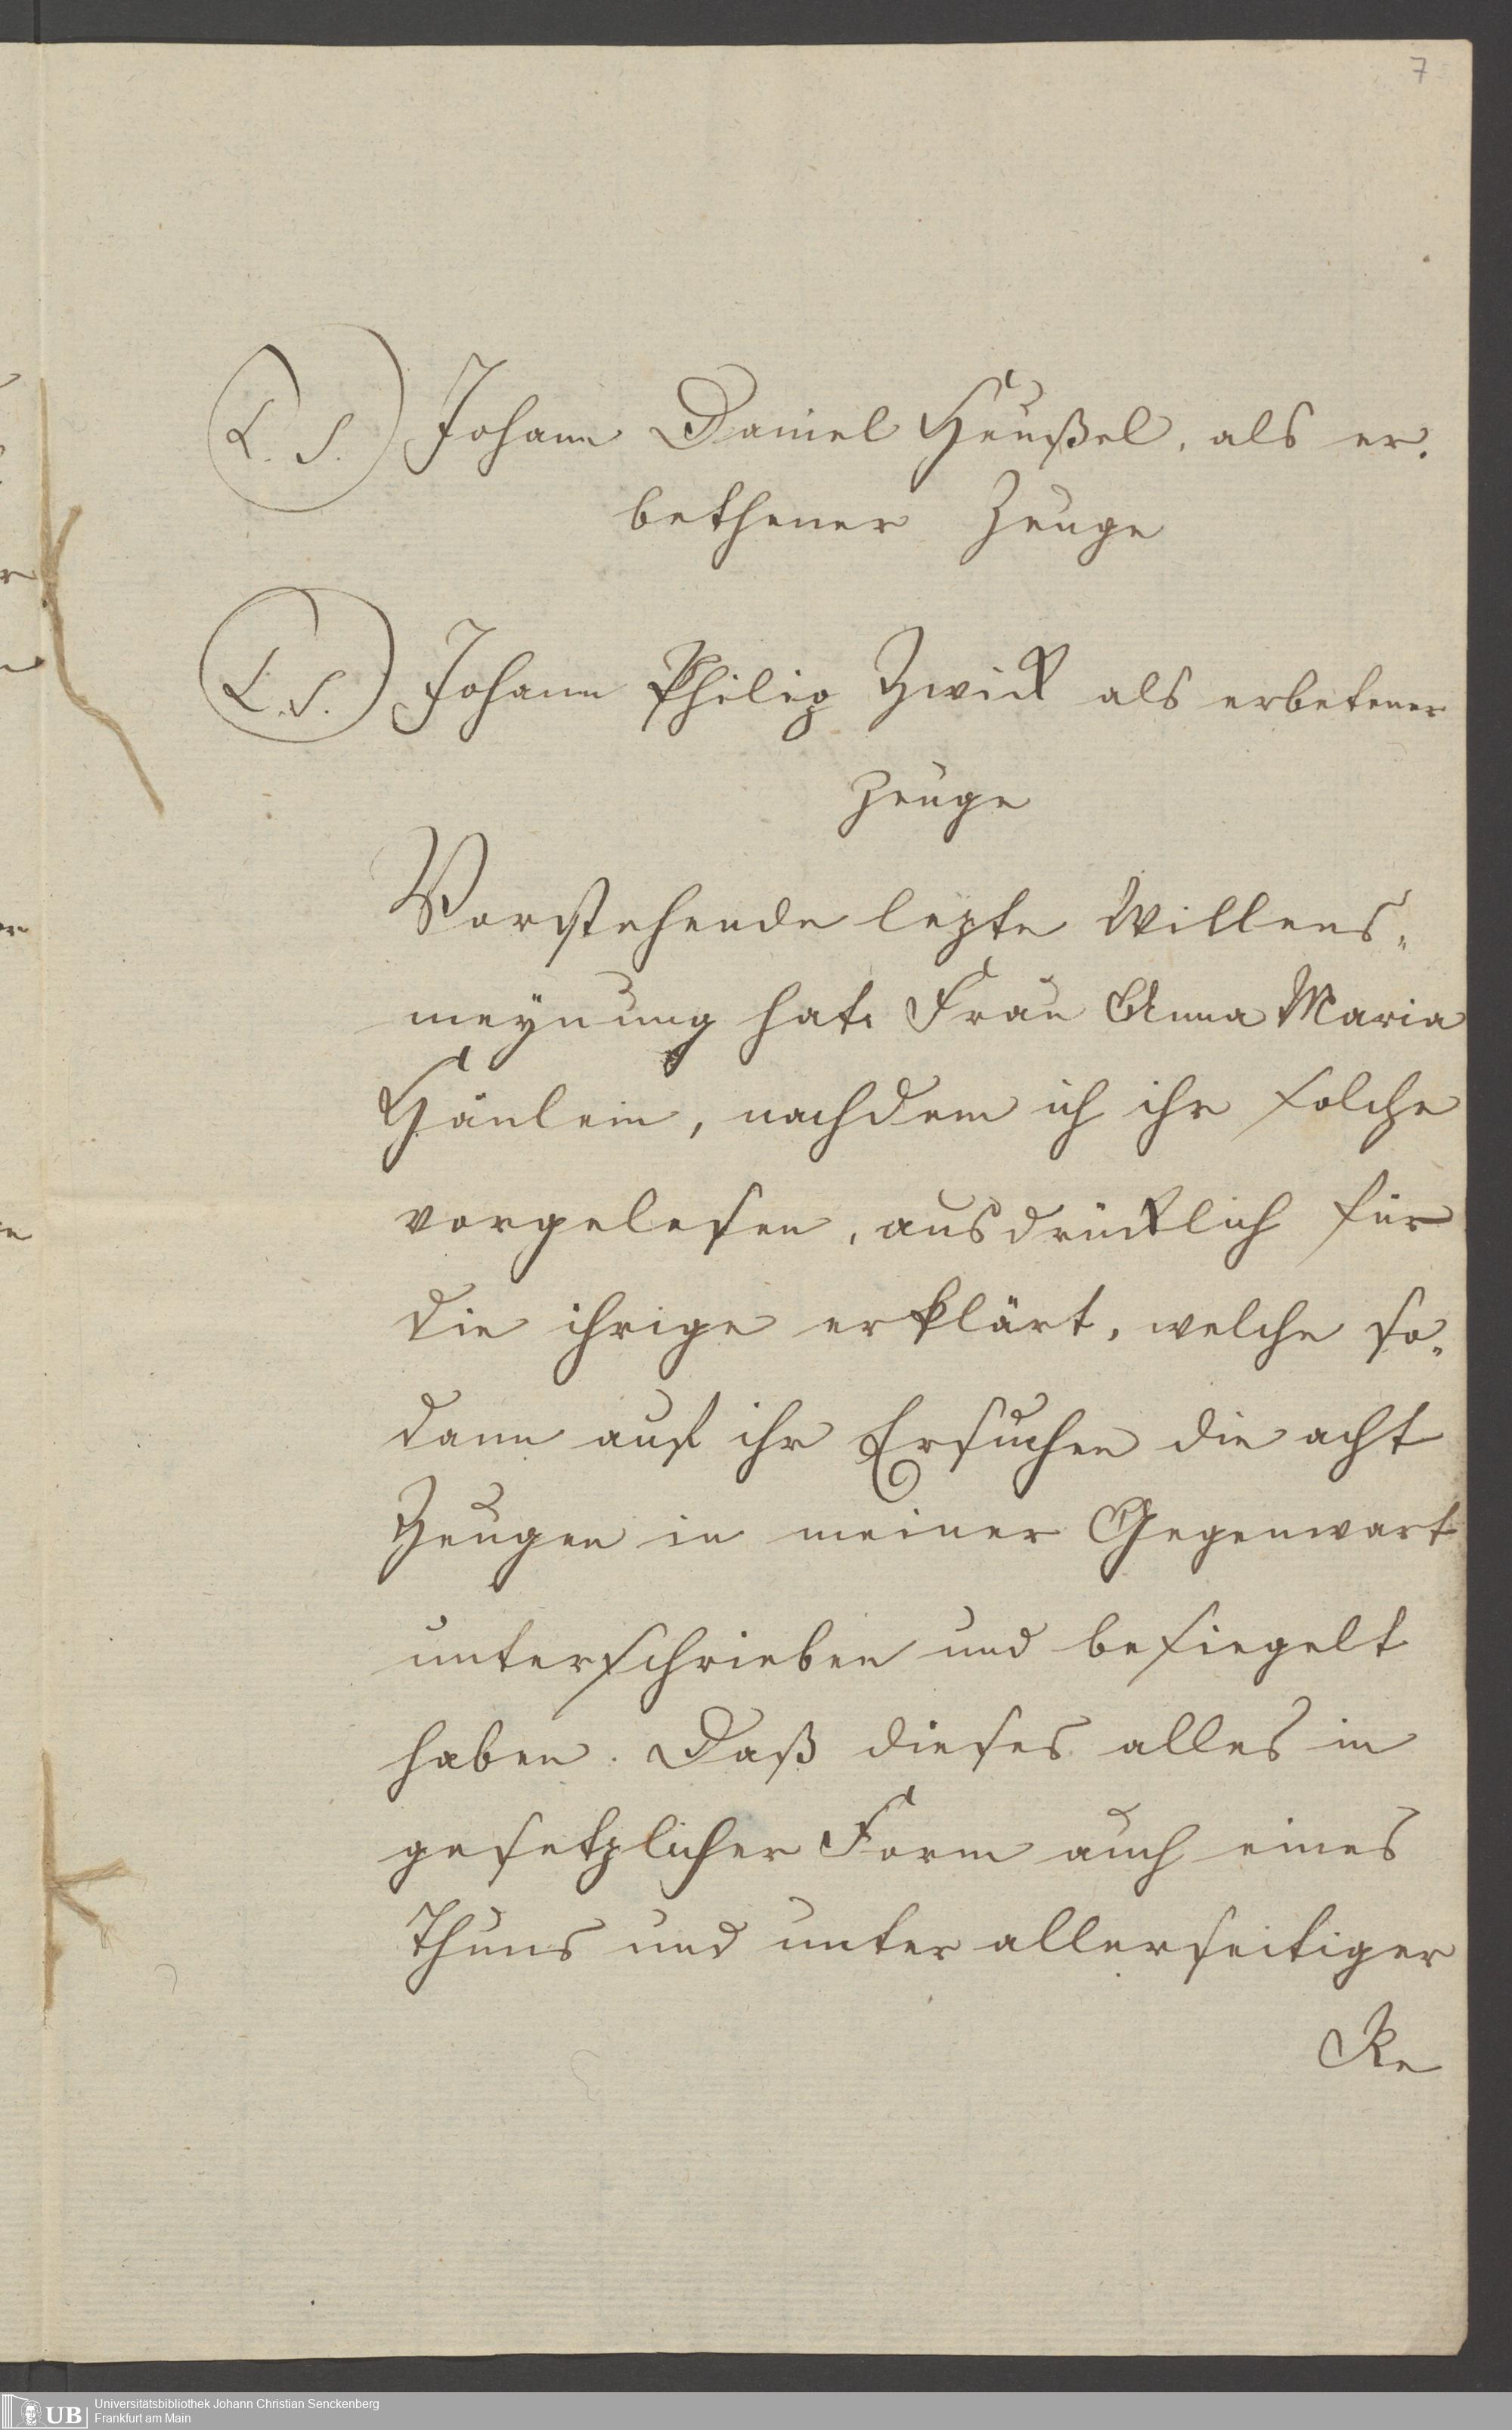 7
L. S. Johann Daniel Heußel, als er-
bethener Zeuge
L. S. Johann Philip Zwick als erbetener
Zeuge
Vorstehende lezte Willens-
meÿnung hat Frau Anna Maria
Hänlein, nachdem ich ihr solche
vorgelesen, ausdrücklich für
die ihrige erklärt, welche so-
dann auf ihr Ersuchen die acht
Zeugen in meiner Gegenwart
unterschrieben und besiegelt
haben. Daß dieses alles in
gesetzlicher Form auch eines
Thuns und unter allerseitiger
Re
UB Universitätsbibliothek Johann Christian Senckenberg
Frankfurt am Main